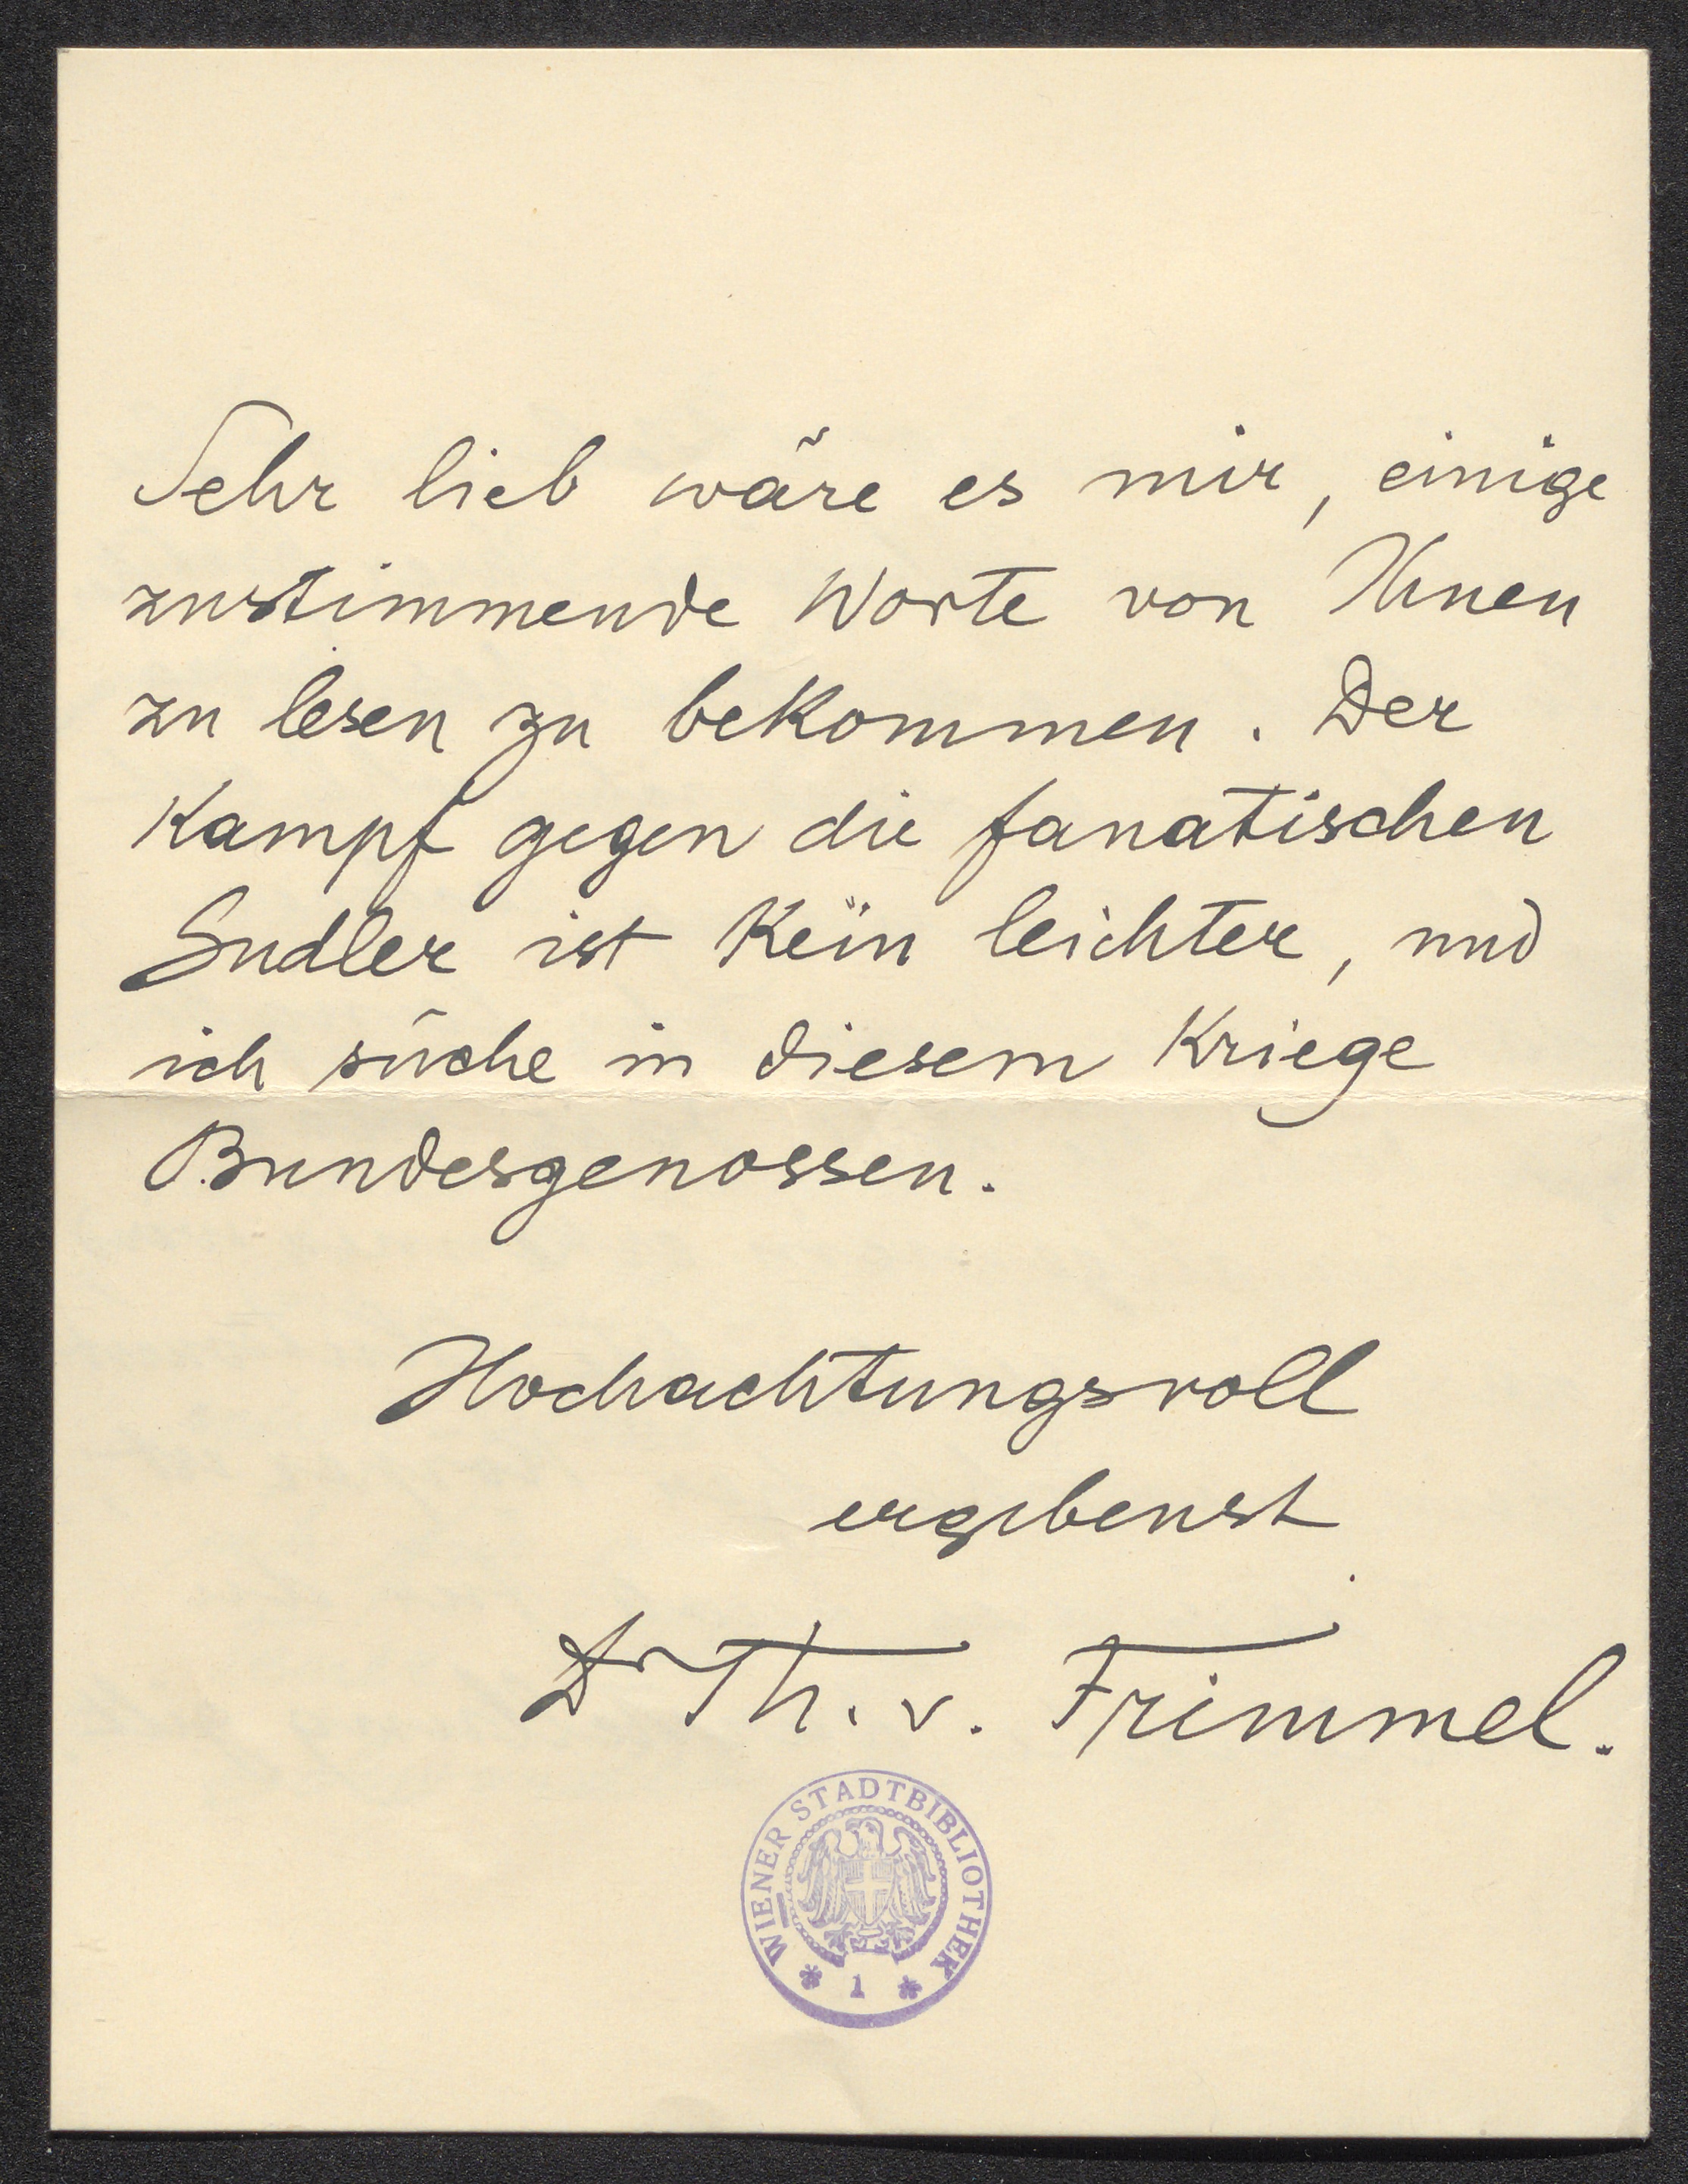 Sehr lieb wäre es mir, einige
zustimmende Worte von Ihnen
zu lesen zu bekommen. Der
Kampf gegen die fanatischen
Sudler ist kein leichter, und
ich suche in diesem Kriege
Bundesgenossen.
Hochachtungsvoll
ergebenst
Dr Th. v. Frimmel.
WIENER STADTBIBLIOTHEK
* 1 *